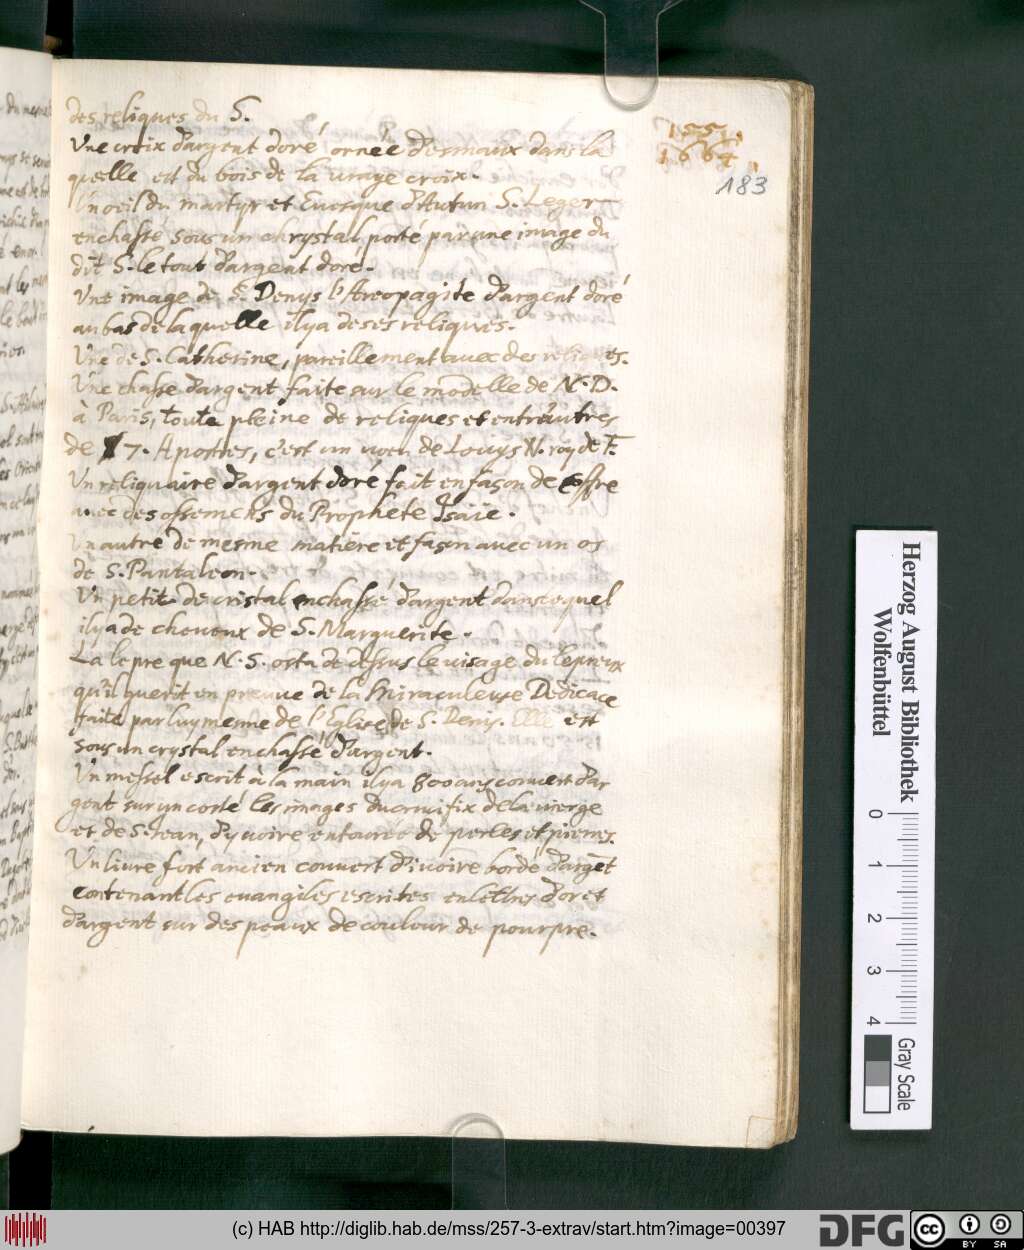 des reliques du S.
Une croix d'argent doré ornée d'esmaux dans la
quelle est du bois de la vraye croix.
Un oeil du martyr et Evesque d'Autun S. Leger
enchassé sous un chrystal porté par une image du
dit S. le tout d'argent doré.
Une image de S. Denys l'Areopagite d'argent doré
au bas de laquelle il y a de ses reliques.
Une de S. Catherine, pareillement avec des reliques.
Une chasse d'argent faite sur le modelle de N. D.
à Paris, toute pleine de reliques et entr'autres
de 7. Apostres, c'est un voeu de Louys N. roy de F.
Un reliquaire d'argent doré fait en façon de coffre
avec des ossemens du Prophete Isaïe.
Un autre de mesme matiere et façon avec un os
de S. Pantaleon.
Un petit de cristal enchassé d'argent dans lequel
il y a de cheveux de S. Marguerite.
La lepre que N. S. osta de dessus le visage du lepreux
qu'il guerit en preuve de la Miraculeuse Dedicace
faite par luy mesme de l'Eglise de S. Denys. Elle est
sous un crystal enchassé d'argent.
Un messel escrit à la main il y a 800 ans couvert d'ar
gent sur un costé les images du crucifix de la vierge
et de S. Jean, d'yvoire entourée de perles et pierres.
Un livre fort ancien couvert d'ivoire bordé d'argēt
contenant les evangiles escrites en lettres d'or et
d'argent sur des peaux de couleur de pourpre.
1551.
1664.
183
Herzog August Bibliothek
Wolfenbüttel
0 1 2 3 4
Gray Scale
(c) HAB http://diglib.hab.de/mss/257-3-extrav/start.htm?image=00397
DFG
cc BY SA